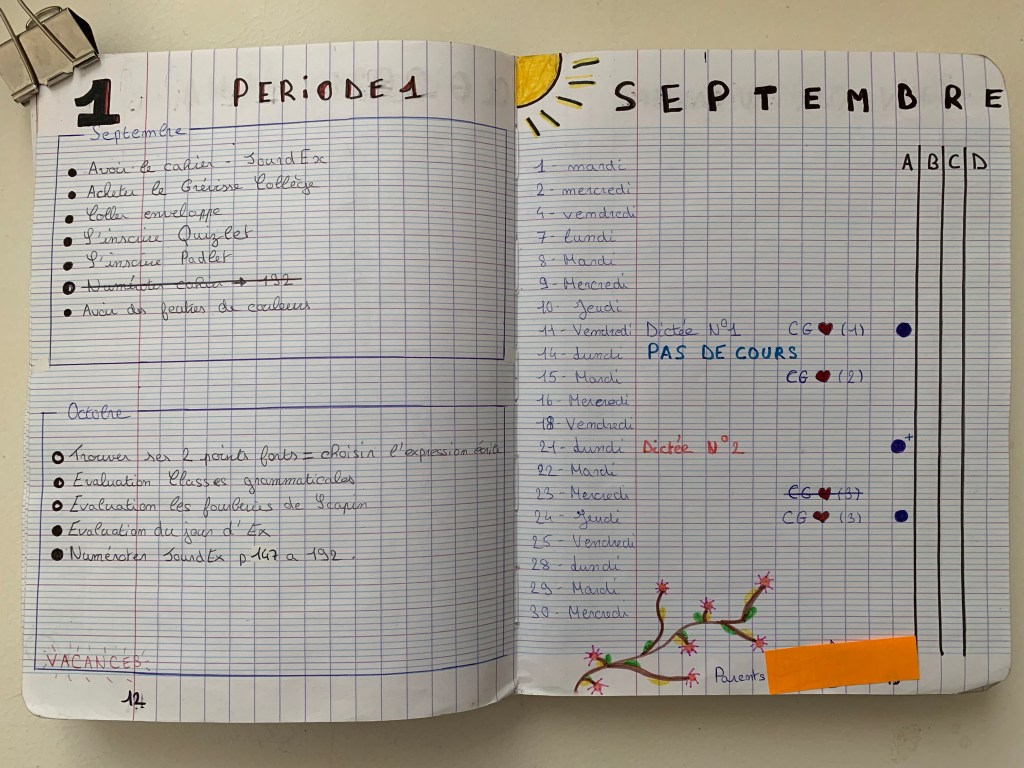 1
PERIODE 1
Septembre
Avoir le cahier - JourdEx
Acheter le Grévisse Collège
Coller enveloppe
S'inscrire Quizlet
S'inscrire Padlet
Numéroter cahier → 192
Avoir des feutres de couleurs
Octobre
Trouver ses 2 points forts = choisir l'expression écrite
Evaluation Classes grammaticales
Evaluation les fourberies de Scapin
Evaluation du jour d'Ex
Numéroter JourdEx p.147 a 192.
VACANCES
12
SEPTEMBRE
A B C D
1 - mardi
2 - mercredi
4 - vendredi
7 - lundi
8 - Mardi
9 - Mercredi
10 - Jeudi
11 - Vendredi Dictée N°1 CG ♥ (1)
14 - lundi PAS DE COURS
15 - Mardi CG ♥ (2)
16 - Mercredi
18 - Vendredi
21 - lundi Dictée N°2 +
22 - Mardi
23 - Mercredi CG ♥ (3)
24 - Jeudi CG ♥ (3)
25 - Vendredi
28 - lundi
29 - Mardi
30 - Mercredi
Parents